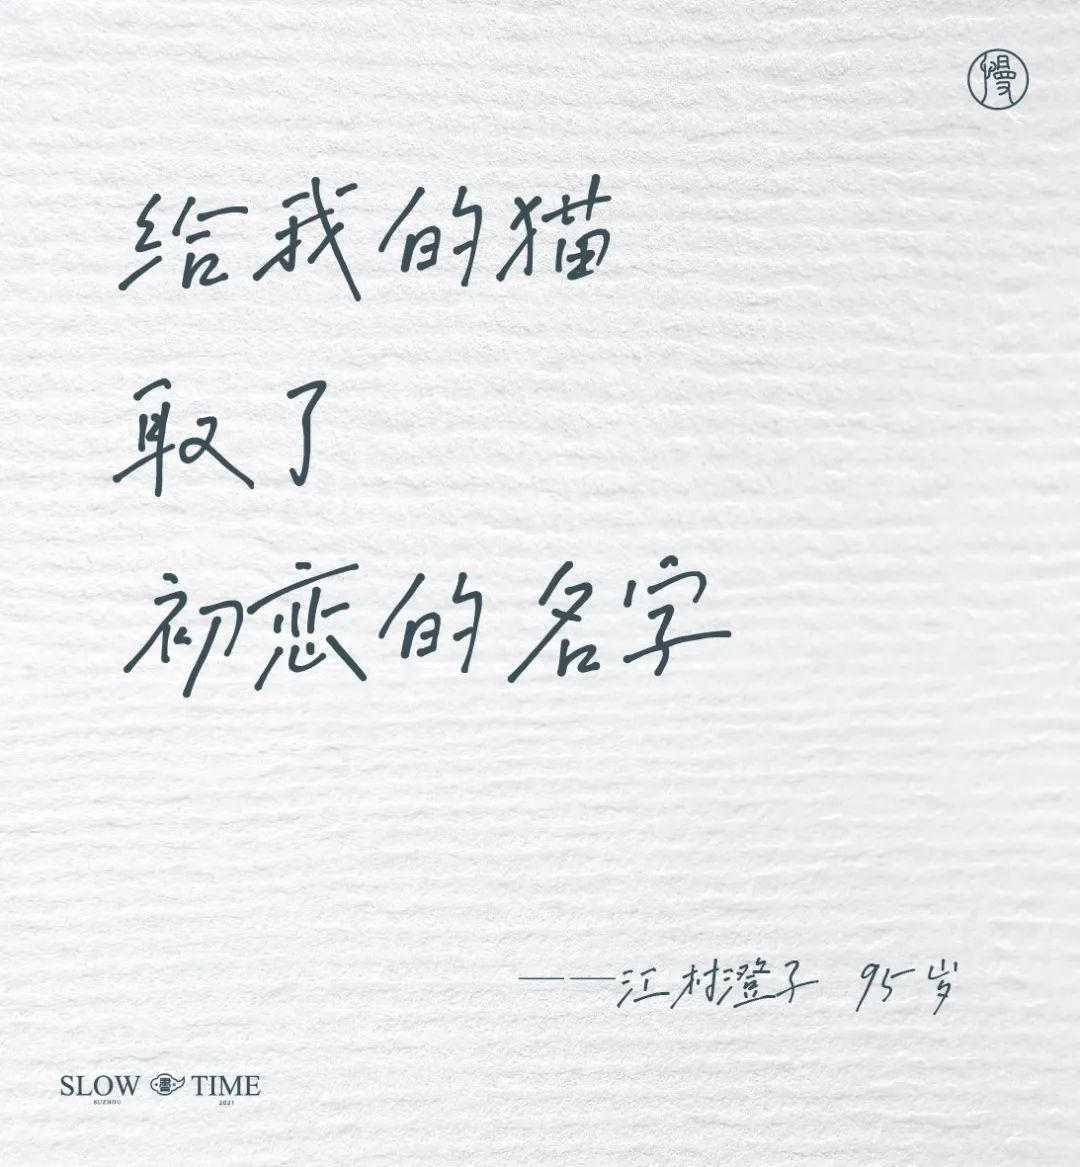 慢
给我的猫
取了
初恋的名字
——江村澄子 95岁
SLOW 書 TIME
SUZHOU 2021